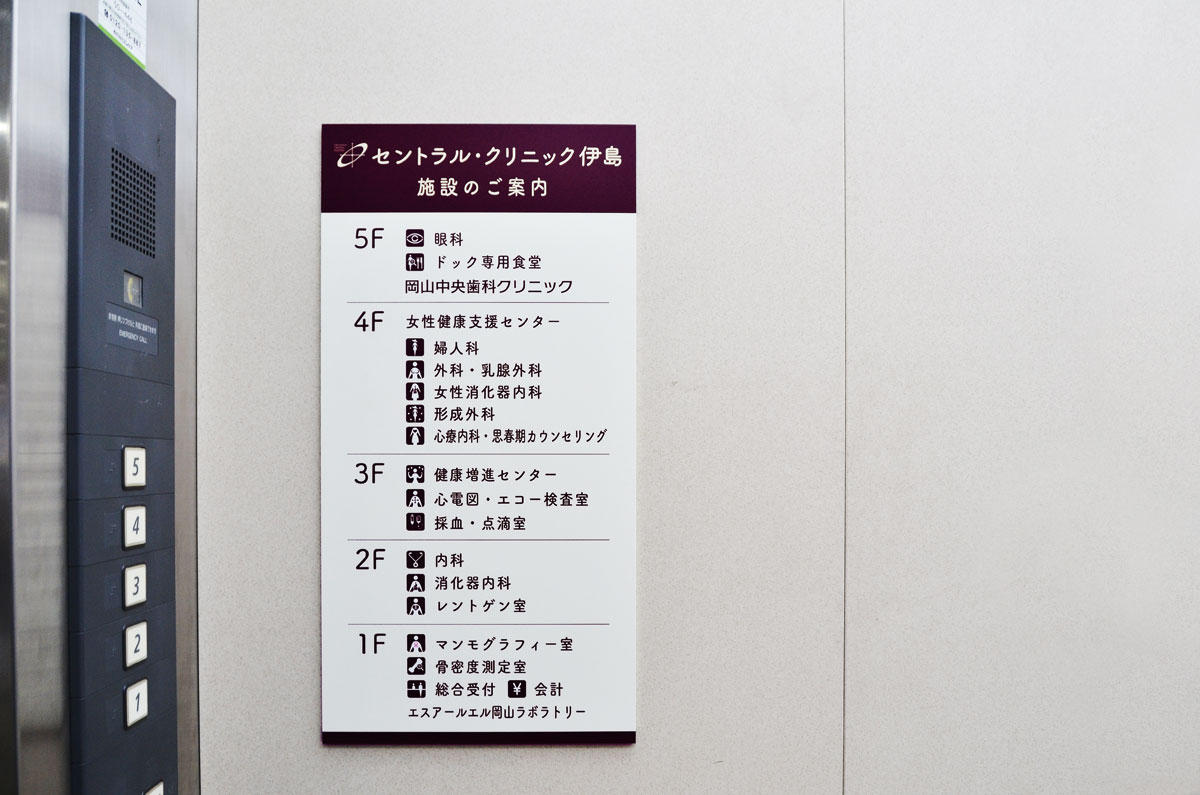 セントラル・クリニック伊島
施設のご案内
5F 眼科
ドック専用食堂
岡山中央歯科クリニック
4F 女性健康支援センター
婦人科
外科・乳腺外科
女性消化器内科
形成外科
心療内科・思春期カウンセリング
3F 健康増進センター
心電図・エコー検査室
採血・点滴室
2F 内科
消化器内科
レントゲン室
1F マンモグラフィー室
骨密度測定室
総合受付 ¥ 会計
エスアールエル岡山ラボラトリー
EMERGENCY CALL
5
4
3
2
1